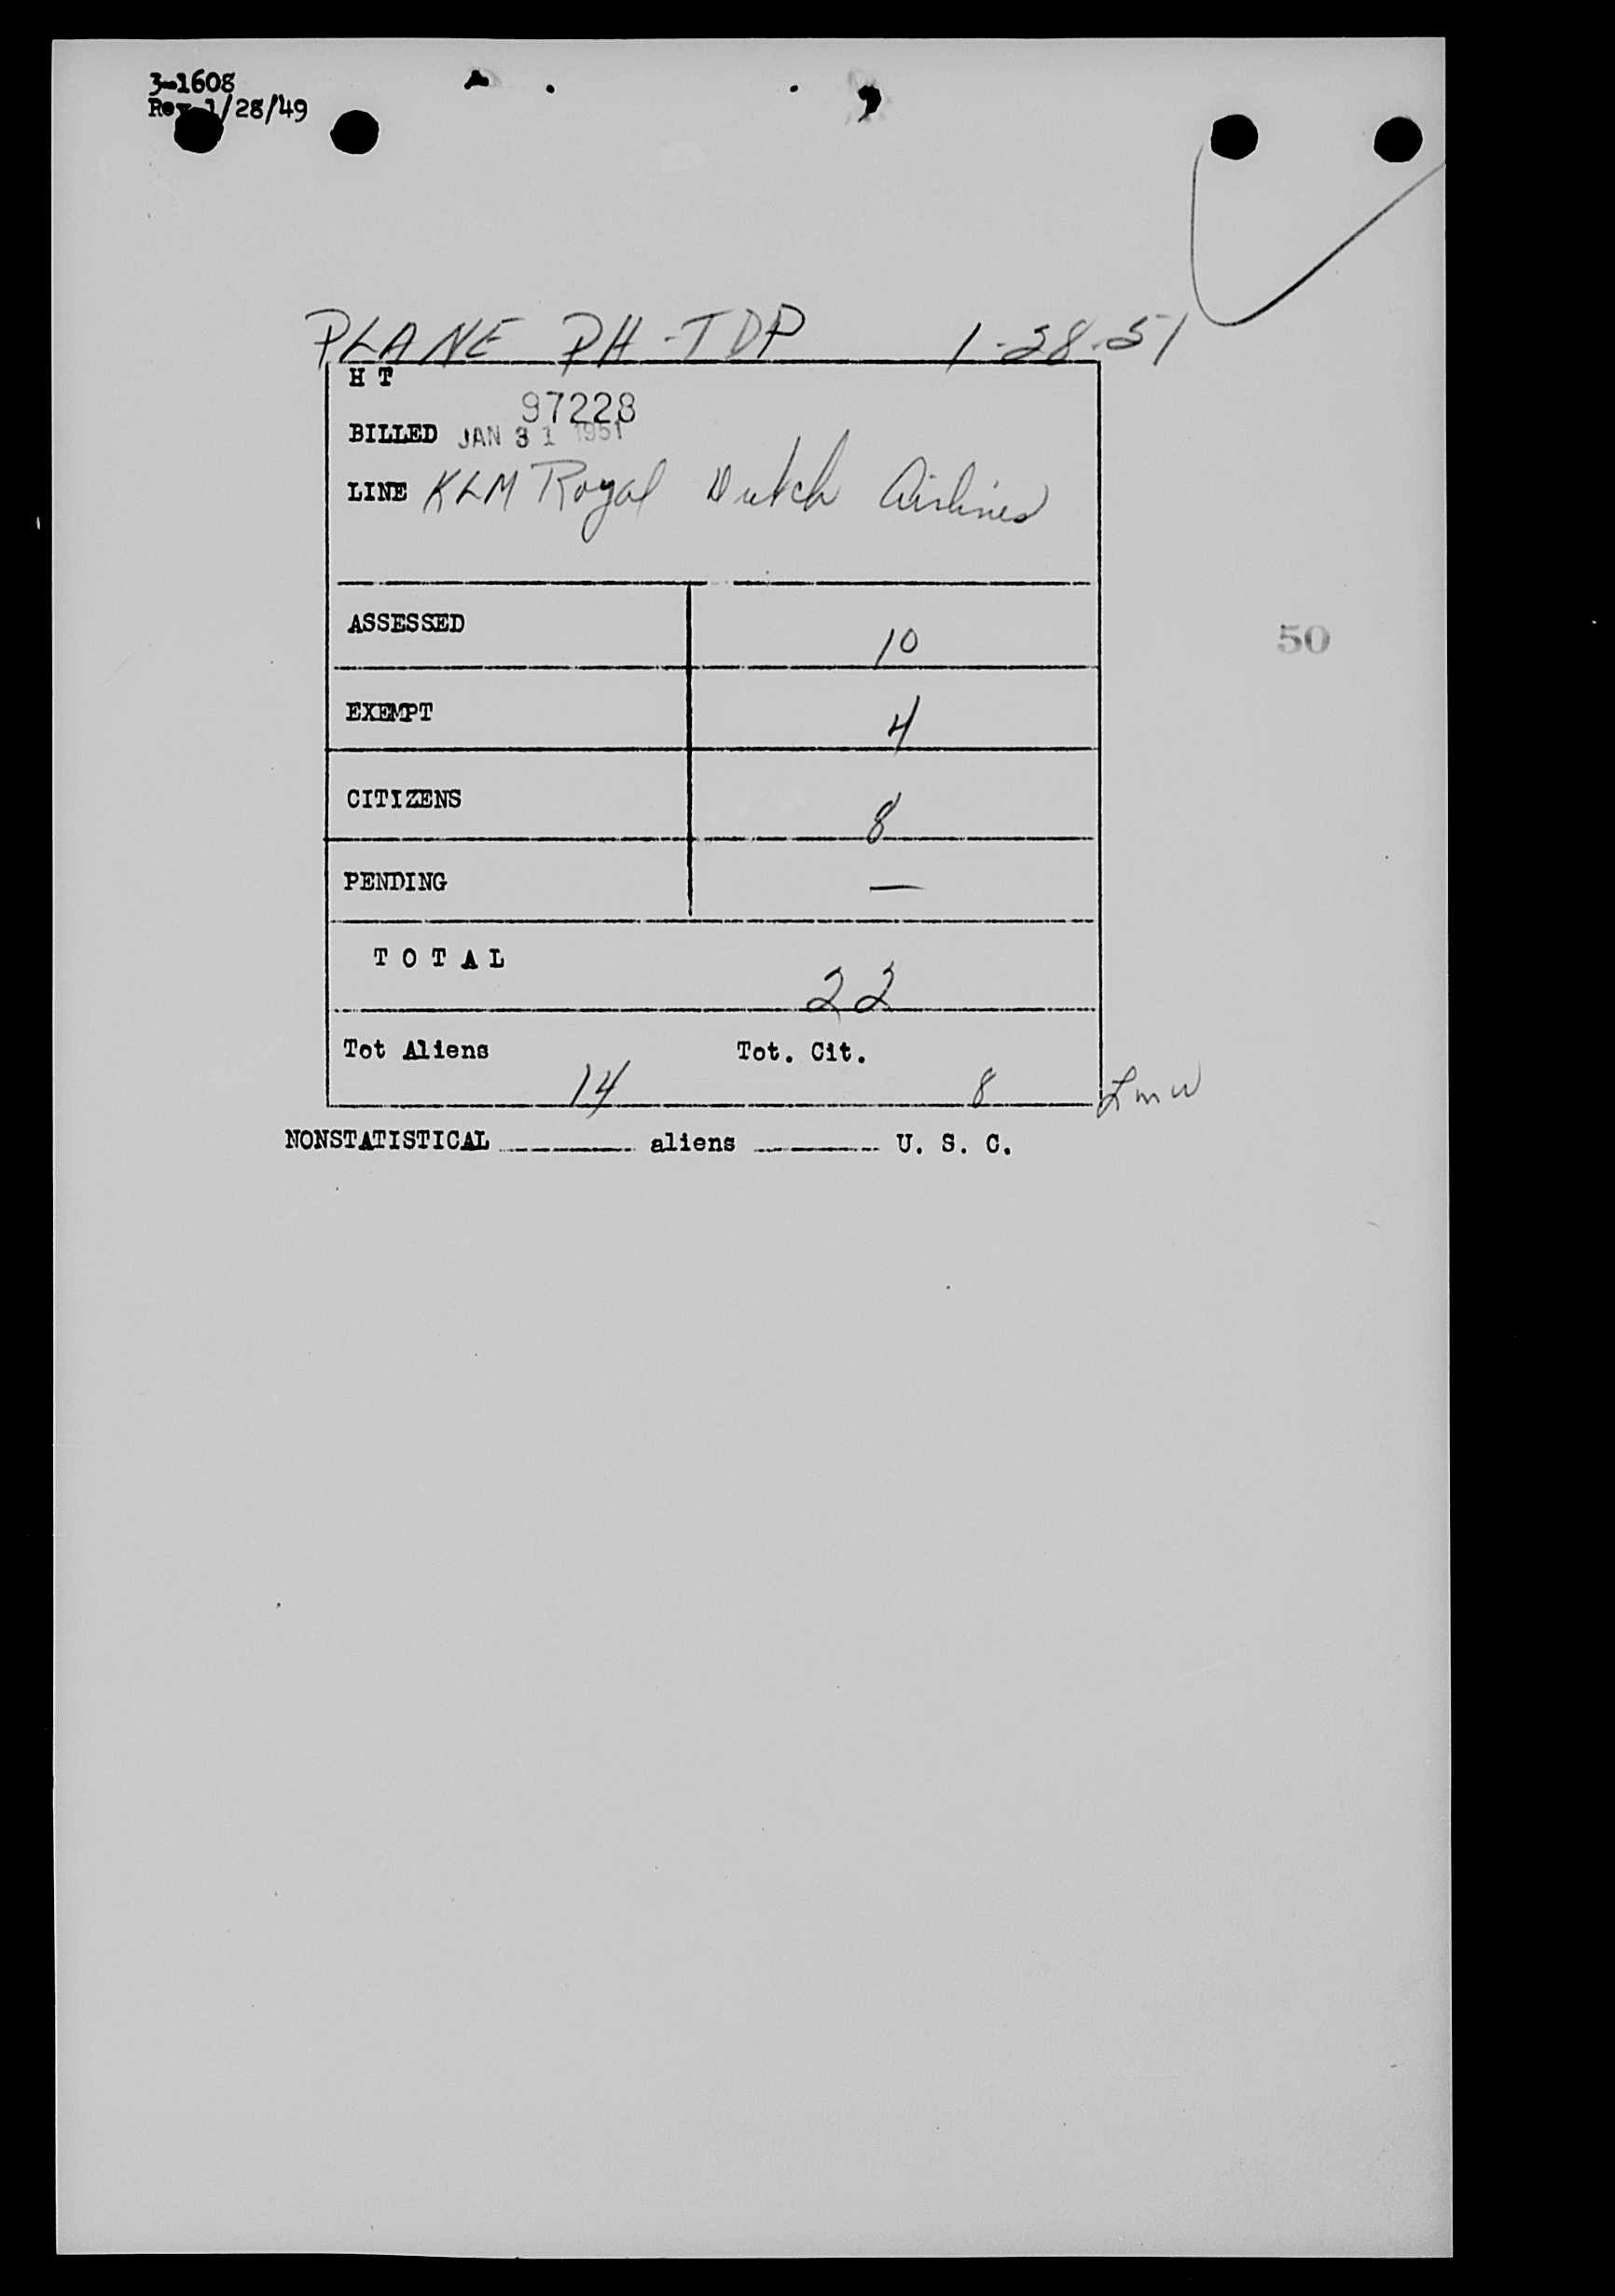 3-1608
Rev 1/28/49
PLANE PH-TDP 1-28-51
H T
97228
BILLED JAN 31 1951
LINE KLM Royal Dutch Airlines
ASSESSED 10
50
EXEMPT 4
CITIZENS 8
PENDING —
TOTAL 22
Tot Aliens Tot. Cit.
14 8 Lmw
NONSTATISTICAL ________ aliens ________ U. S. C.